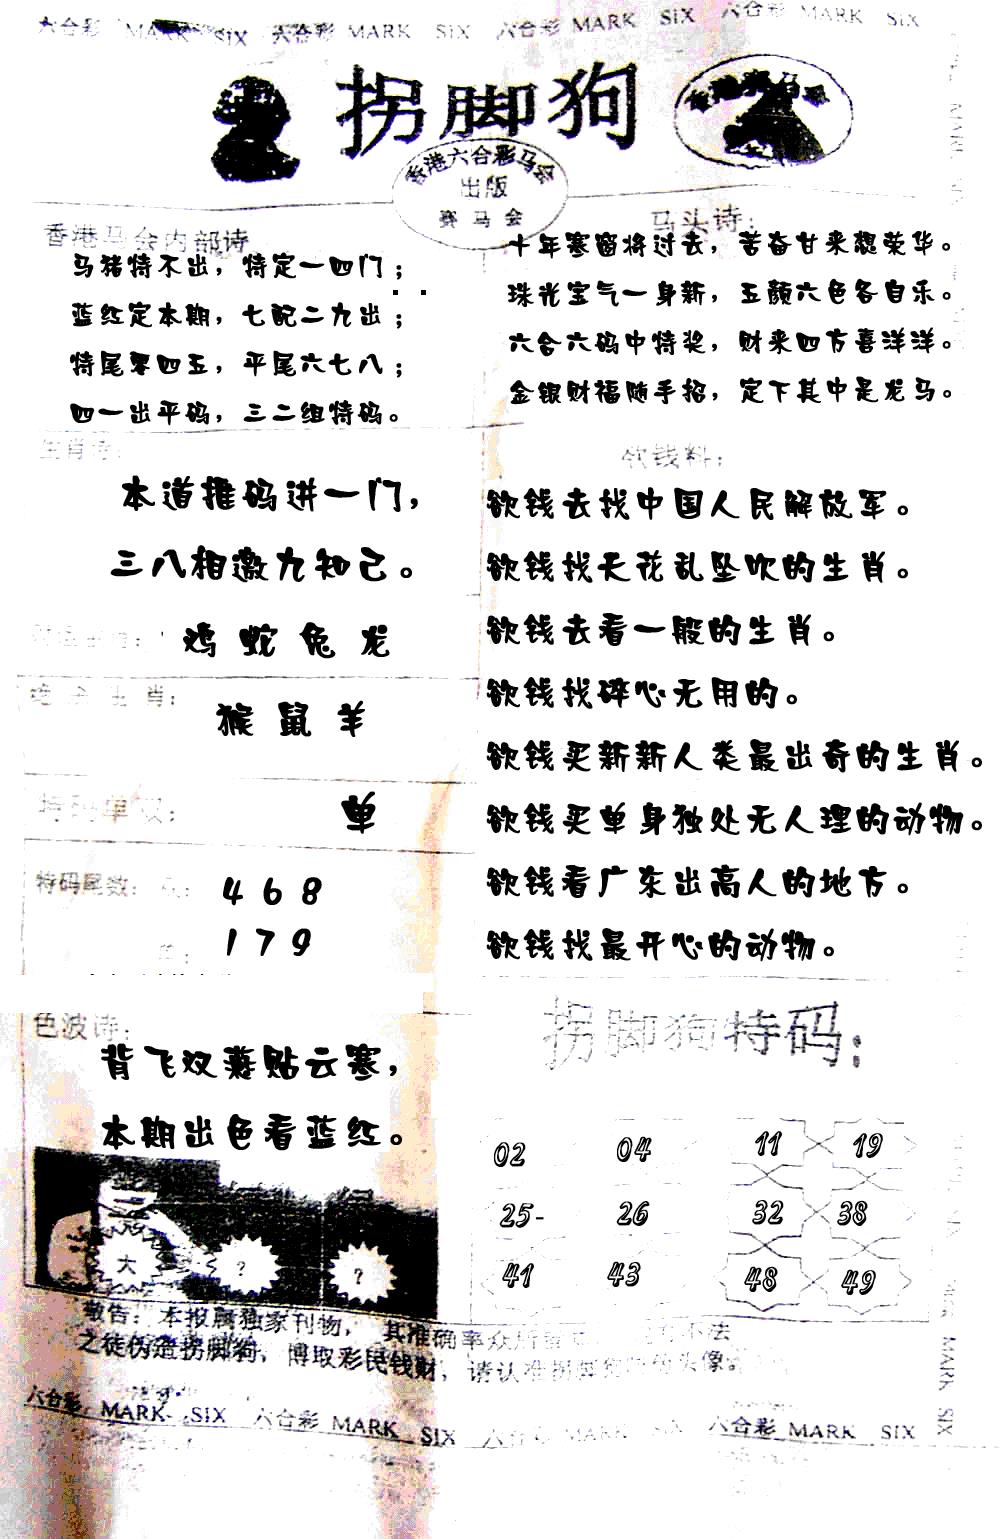 六合彩 MARK SIX 六合彩 MARK SIX 六合彩 MARK SIX 六合彩 MARK SIX
拐脚狗
香港六合彩马会
出版
赛马会
香港马会内部诗
马猪特不出，特定一四门；
蓝红定本期，七配二九出；
特尾零四五，平尾六七八；
四一出平码，三二组特码。
马头诗：
十年寒窗将过去，苦奋甘来想荣华。
珠光宝气一身新，五颜六色各自乐。
六合六码中特奖，财来四方喜洋洋。
金银财福随手招，定下其中是龙马。
生肖诗：
本道推码进一门，
三八相邀九知己。
鸡 蛇 兔 龙
生肖：
猴 鼠 羊
特码单双：
单
特码尾数：
4 6 8
1 7 9
欲钱料：
欲钱去找中国人民解放军。
欲钱找天花乱坠吹的生肖。
欲钱去看一般的生肖。
欲钱找碎心无用的。
欲钱买新新人类最出奇的生肖。
欲钱买单身独处无人理的动物。
欲钱看广东出高人的地方。
欲钱找最开心的动物。
色波诗：
背飞双燕贴云寒，
本期出色看蓝红。
大 ? ?
拐脚狗特码：
02 04 11 19
25- 26 32 38
41 43 48 49
敬告：本报属独家刊物，其准确率众所 不法
之徒伪造拐脚狗，博取彩民钱财，请认准拐脚 头像
六合彩 MARK SIX 六合彩 MARK SIX 六合彩 MARK SIX 六合彩 MARK SIX
MARK SIX